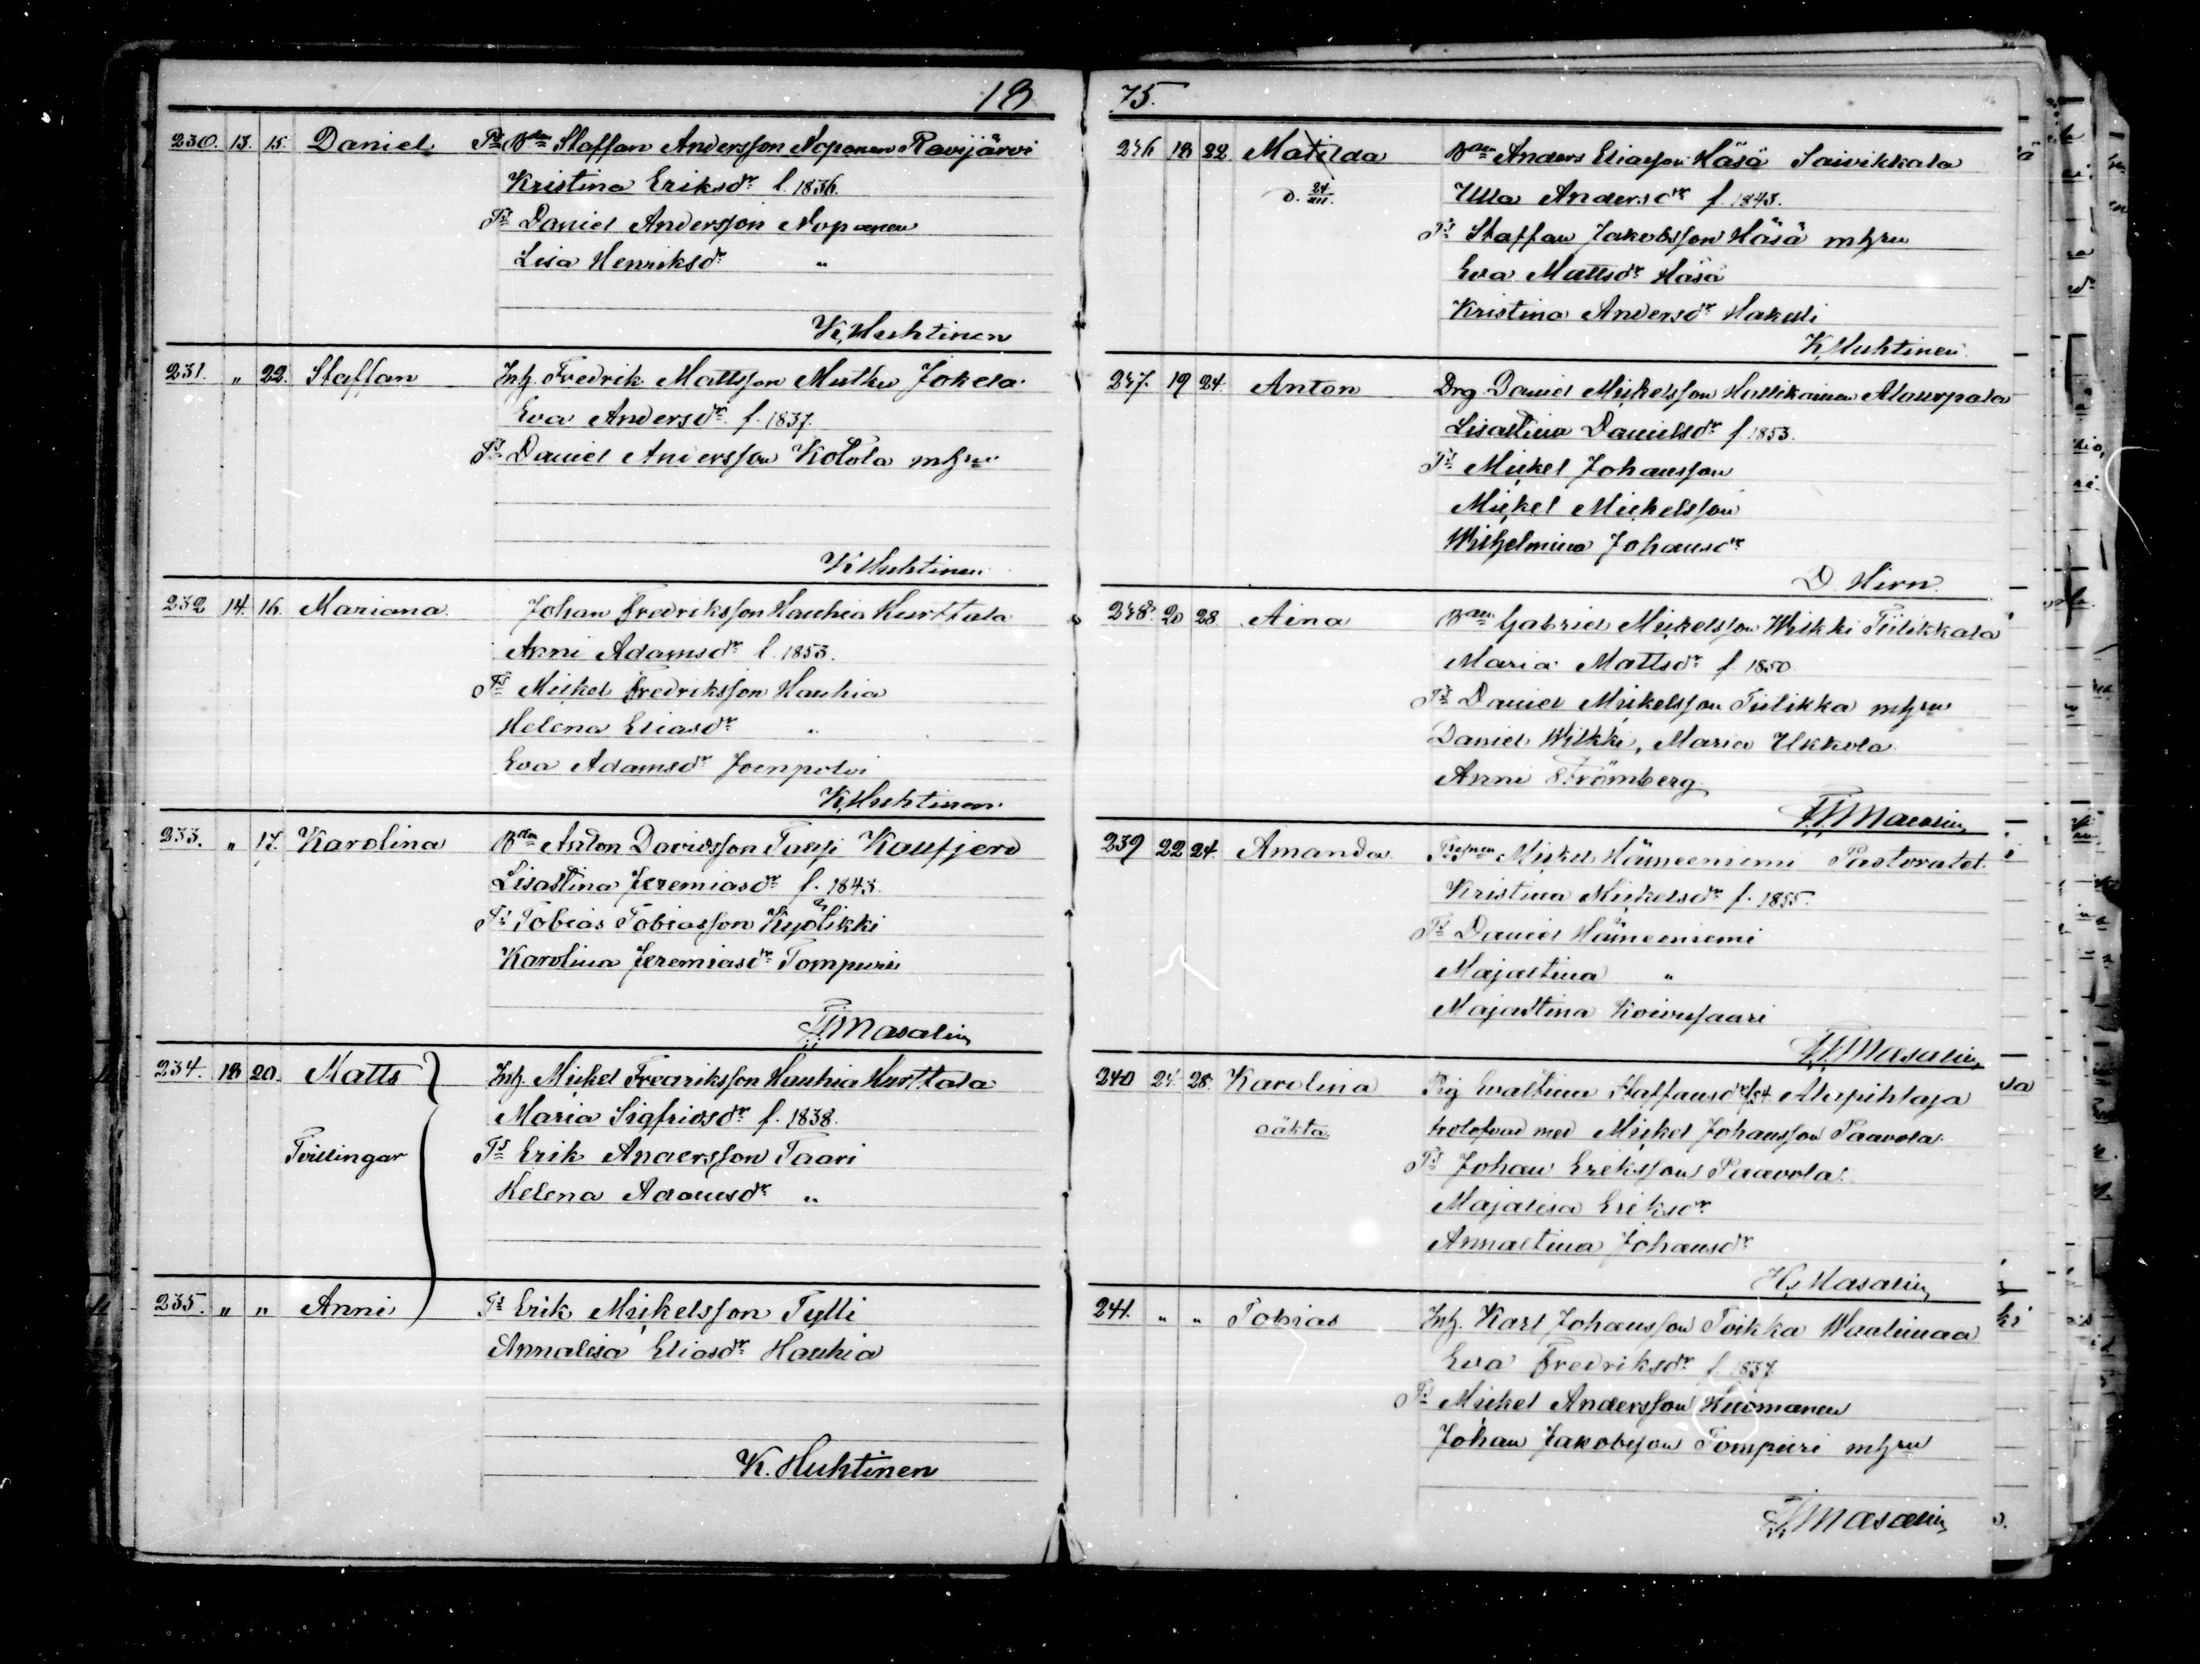 18
230. 13. 15. Daniel Bdn Staffan Andersson Noponen Ravijärvi
Kristina Eriksdr f. 1836.
Ts Daniel Andersson Noponen
Lisa Henriksdr "
K. Huhtinen
231. " 22. Staffan Inh. Fredrik Mattsson Mutku Jokela.
Eva Andersdr f. 1837.
Ts Daniel Andersson Kolola mhru
K Huhtinen
232 14. 16. Mariana. Johan Fredriksson Hauhia Hurttala
Anni Adamsdr f. 1853.
Ts Mickel Fredriksson Hauhia
Helena Eliasdr "
Eva Adamsdr Joenpolvi
K. Huhtinen.
233. " 17. Karolina Bdn Anton Davidsson Kausjerd
Lisastina Jeremiasdr f. 1843.
Ts Tobias Tobiasson
Karolina Jeremiasdr Tompuri
Masalin
234. 18 20. Matts Inh. Mickel Fredriksson Hauhia Hurttala
Maria Sigfridsdr f. 1838.
Tvillingar Ts Erik Andersson Taari
Helena Adamsdr "
235. " " Anni Ts Erik Mickelsson Tylli
Annalisa Eliasdr Hauhia
K. Huhtinen
75.
236 18 22 Matilda Bdn Anders Eliasson Häsä Saivikkala
d. 24/XII. Ulla Andersdr f. 1843.
Ts Staffan Jakobsson Häsä mhru
Eva Mattsdr Häsä
Kristina Andersdr Hakuli
K. Huhtinen.
237. 19 24. Anton Drg Daniel Mickelsson Hallikainen Alaurpala
Lisastina Danielsdr f. 1853.
Ts Mickel Johansson
Mickel Mickelsson
Wilhelmina Johansdr
D. Hirn.
238. 20 28 Aina Bdn Gabriel Mickelsson Wilkki Tiilikkala
Maria Mattsdr f. 1850.
Ts Daniel Mickelsson Tiilikka mhru
Daniel Wilkki, Maria Ukkola
Anni Strömberg
Masalin
239 22 24. Amanda Mickel Hämeeniemi Pastoratet.
Kristina Mickelsdr f. 1855.
Ts Daniel Hämeeniemi
Majastina "
Majastina Koivusaari
Masalin
240 24. 28. Karolina Pig Evastina Staffansdr f. 54 Alapihlaja
oäkta trolofvad med Mickel Johansson Paavola.
Ts Johan Eriksson Paavola.
Majalisa Eriksdr
Annastina Johansdr
Masalin
241. " " Tobias Inh. Karl Johansson Toikka Waalimaa
Eva Fredriksdr f. 1837.
Ts Mickel Andersson Kuomanen
Johan Jakobsson Tompuri mhru
Masalin